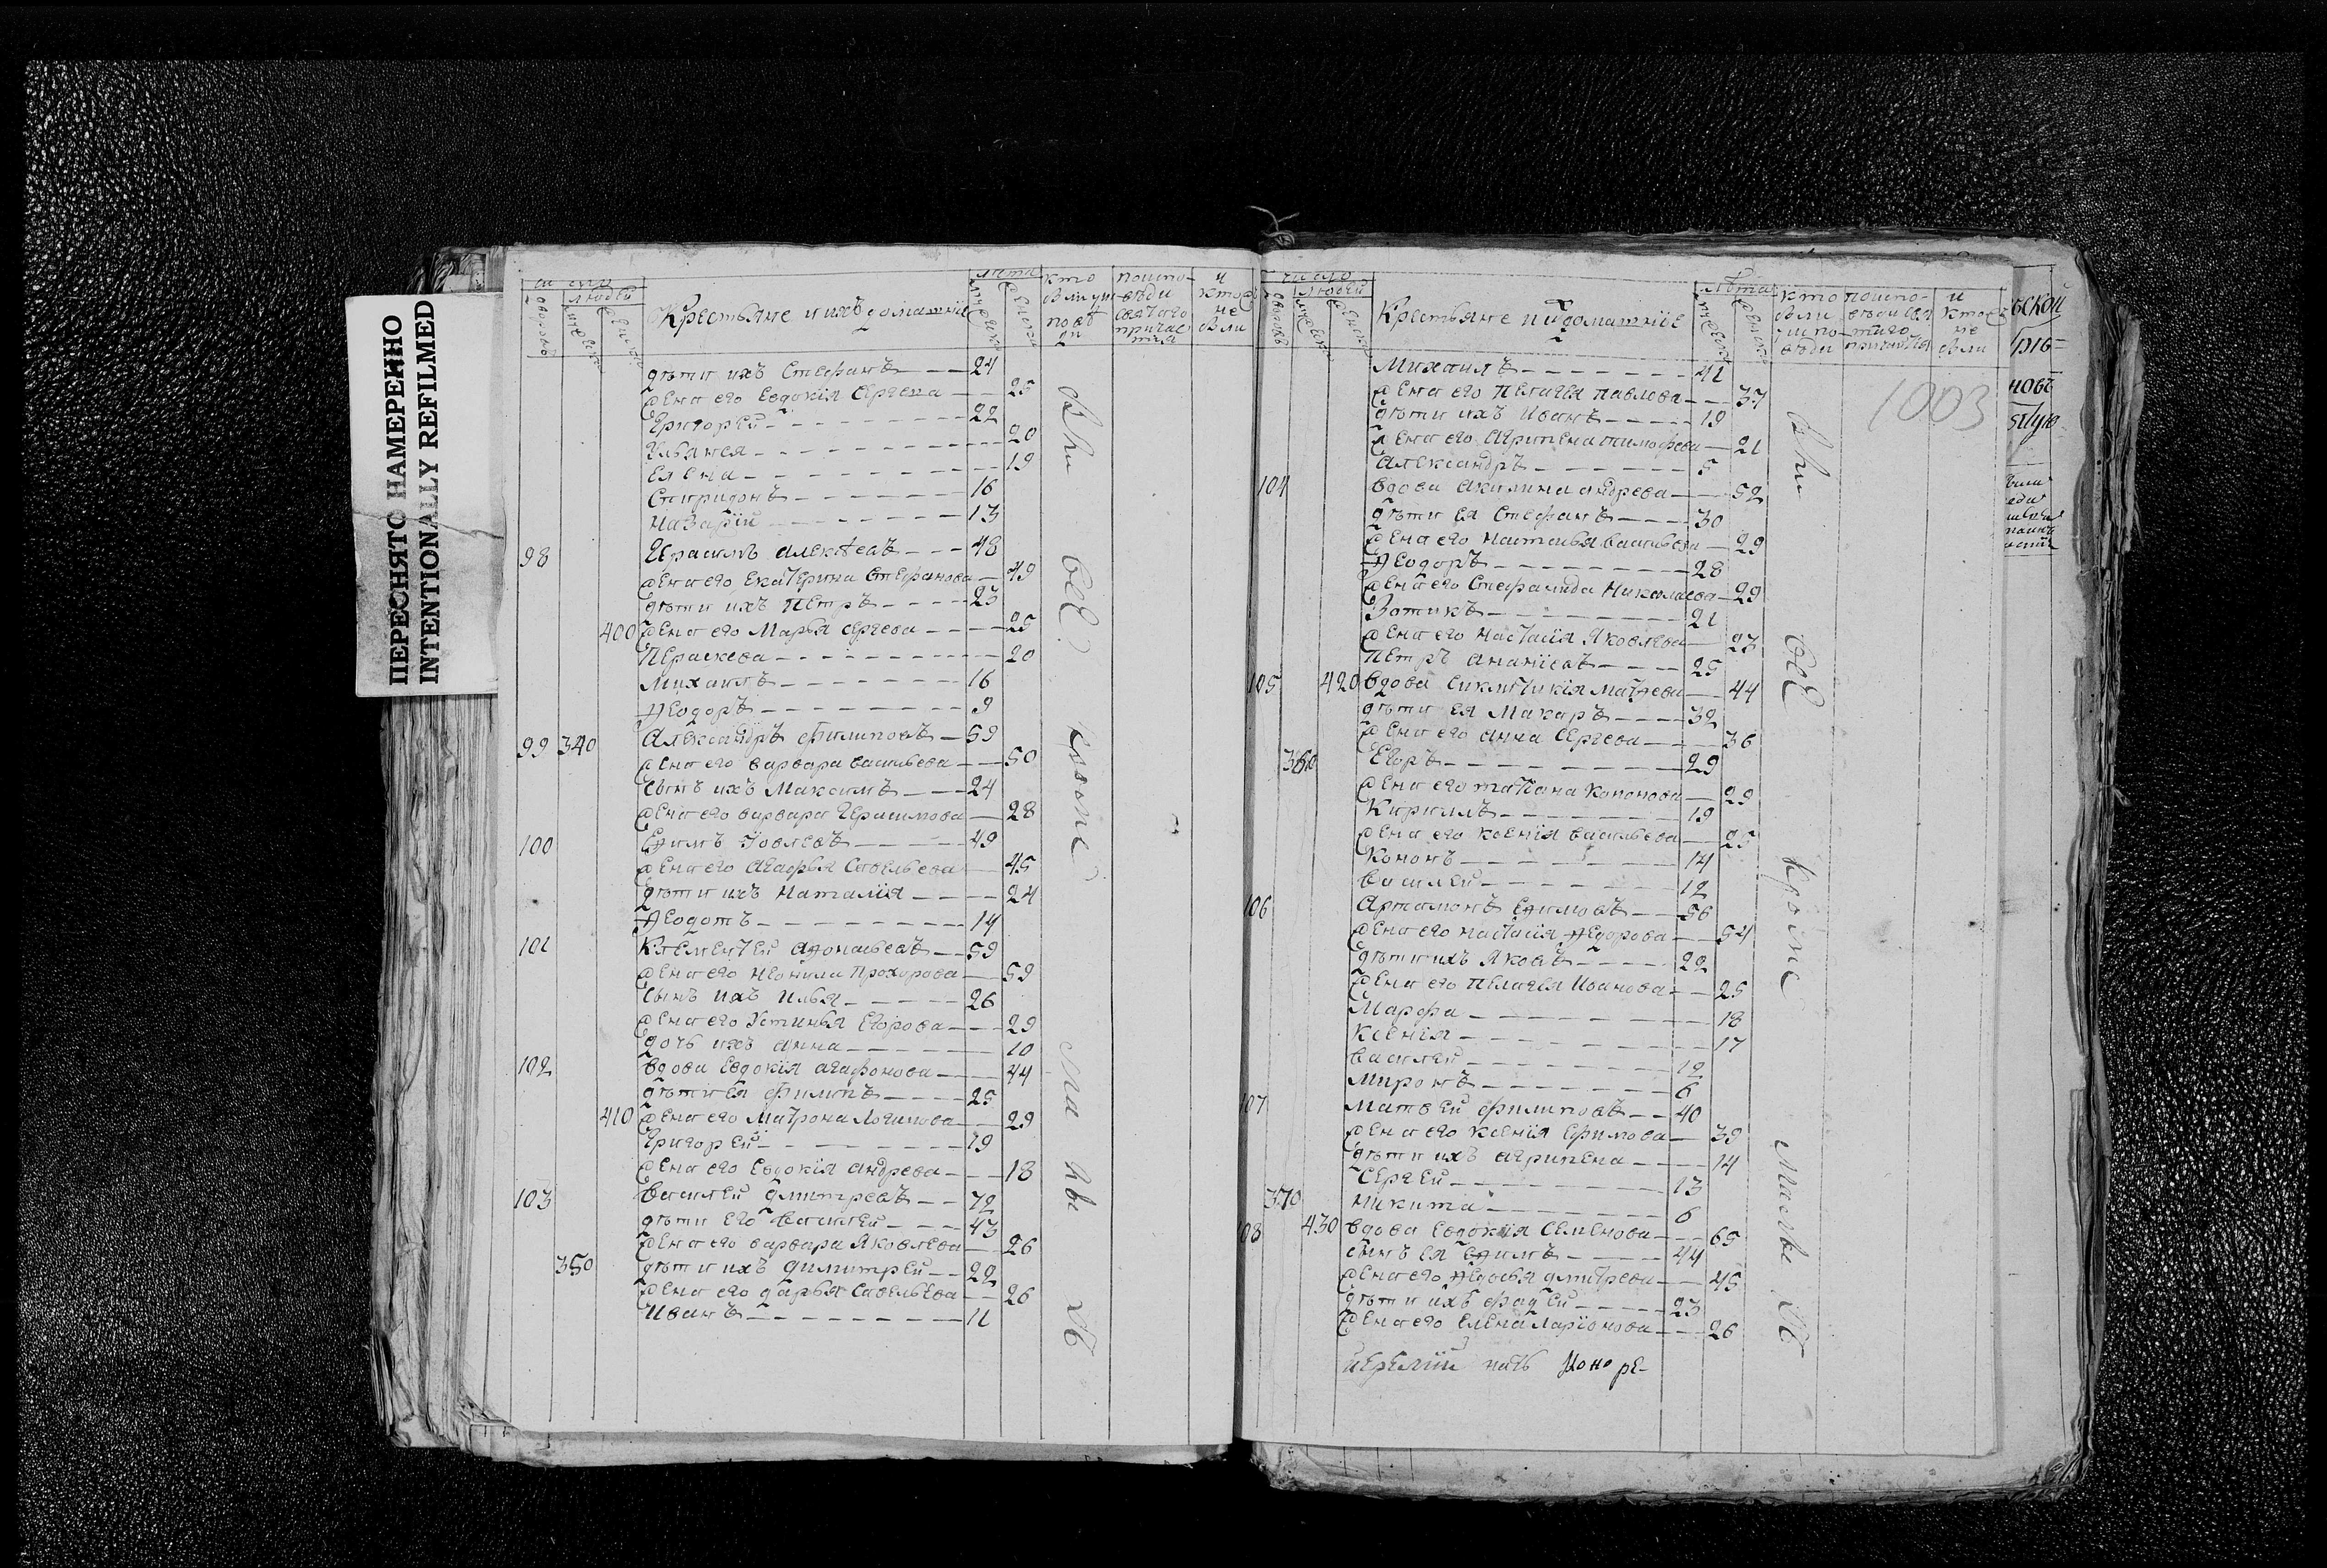 ПЕРЕСНЯТО НАМЕРЕННО
INTENTIONALLY REFILMED
число
людей
дворовъ
Крестьяне и ихъ домашнїе
лета
кто
были у исповеди
святаго причастїя
и кто не были
дѣти ихъ Стефанъ 24
жена его Евдокїя Сергеева 25
Григорей 22
Ульянея 20
Елена 19
Спиридонъ 16
Назарїй 13
98 Герасимъ Алексѣевъ 48
жена его Екатерина Стефанова 49
дѣти ихъ Петръ 23
400 жена его Марья Сергеева 25
Пераскева 20
Михаилъ 16
Ѳеодоръ 9
99 340 Александръ Филиповъ 59
жена его Варвара Васильева 50
сынъ ихъ Максимъ 24
жена его Варвара Герасимова 28
100 Еѳимъ Іовлевъ 49
жена его Агафья Савельева 45
дѣти ихъ Наталїя 24
Ѳеодотъ 14
101 Клементей Аѳонасьевъ 59
жена его Неонила Прохорова 59
сынъ ихъ Илья 26
жена его Устинья Егорова 29
дочь ихъ Анна 10
102 вдова Евдокїя Агафонова 44
дѣти ея Филипъ 25
410 жена его Матрона Логинова 29
Григорей 19
жена его Евдокїя Андреева 18
103 Василей Дмитревъ 72
дѣти его Василей 43
жена его Варвара Яковлева 26
350 дѣти ихъ Димитрей 22
жена его Дарья Савельева 26
Иванъ 11
число
людей
Крестьяне и ихъ домашнїе
лѣта
кто
были
и кто не были
1003
Михаилъ 41
жена его Пелагея Павлова 37
дѣти ихъ Иванъ 19
жена его Агрипена Тимофеева 21
Александръ 5
104 вдова Акилина Андреева 52
дѣти ея Стефанъ 30
жена его Наталья Васильева 29
Ѳеодоръ 28
жена его Стефанида Николаева 29
Зотикъ 21
жена его Настасїя Яковлева 23
Петръ Ананїевъ 25
105 420 вдова Сиклитикїя Матѳеева 44
дѣти ея Макаръ 32
жена его Анна Сергеева 36
360 Егоръ 29
жена его Татїана Кононова 29
Кирилъ 19
жена его Ксенїя Васильева 25
Кононъ 14
Василей 12
106 Артамонъ Еѳимовъ 56
жена его Настасїя Ѳедорова 54
дѣти ихъ Яковъ 22
жена его Пелагея Иванова 25
Марфа 18
Ксенїя 17
Василей 12
Миронъ 6
107 Матвей Филиповъ 40
жена его Ксенїя Ефимова 39
дѣти ихъ Агрипена 14
Сергей 13
370 Никита 6
108 430 вдова Евдокїя Семенова 65
сынъ ея Еѳимъ 44
жена его Ѳедосья Дмитрева 45
дѣти ихъ Фадей 23
жена его Елена Ларїонова 26